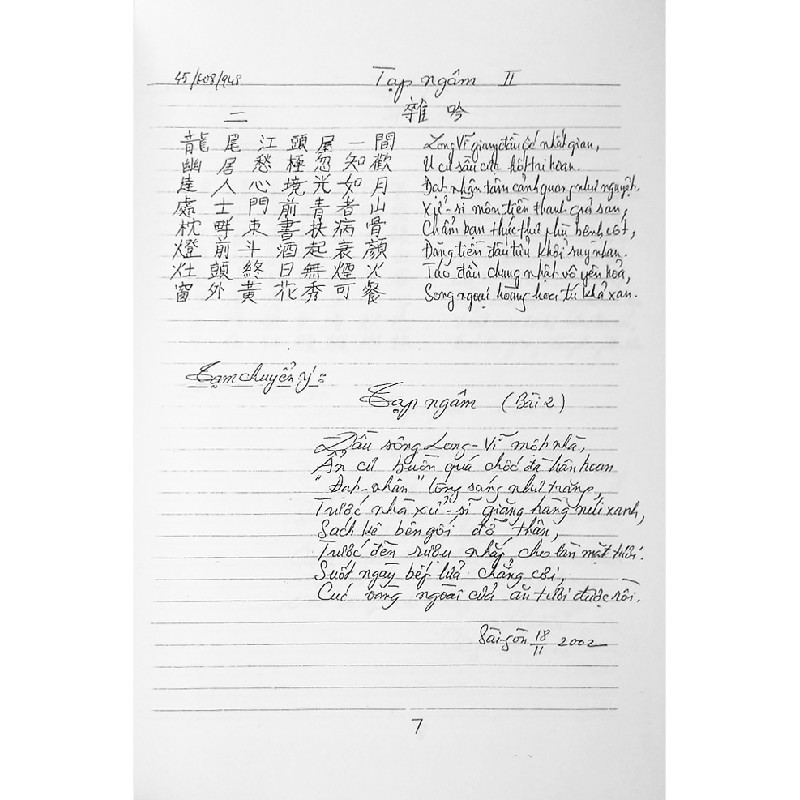 45/508/948 Tạp ngâm II
二 雜吟
龍尾江頭屋一間 Long Vĩ giang đầu ốc nhất gian,
幽居愁極忽知歡 U cư sầu cực hốt tri hoan.
達人心境光如月 Đạt nhân tâm cảnh quang như nguyệt.
處士門前青者山 Xử sĩ môn tiền thanh giả san,
枕畔束書扶病骨 Chẩm bạn thúc thư phù bệnh cốt,
燈前斗酒起衰顏 Đăng tiền đẩu tửu khởi suy nhan.
灶頭終日無煙火 Táo đầu chung nhật vô yên hỏa,
窗外黃花秀可餐 Song ngoại hoàng hoa tú khả xan.
Tạm chuyển ý:
Tạp ngâm (Bài 2)
Đầu sông Long-Vĩ một nhà,
Ẩn cư buồn quá chốc đà hân hoan
"Đạt-nhân" lòng sáng như trăng,
Trước nhà xử-sĩ giăng hàng núi xanh,
Sách kê bên gối đỡ thân,
Trước đèn rượu nhắp cho lần mặt tươi.
Suốt ngày bếp lửa chẳng cời,
Cúc vàng ngoài cửa ăn tươi được rồi.
Sài gòn 18/11 2002
7